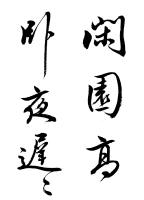 閑園高
卧夜遲〻